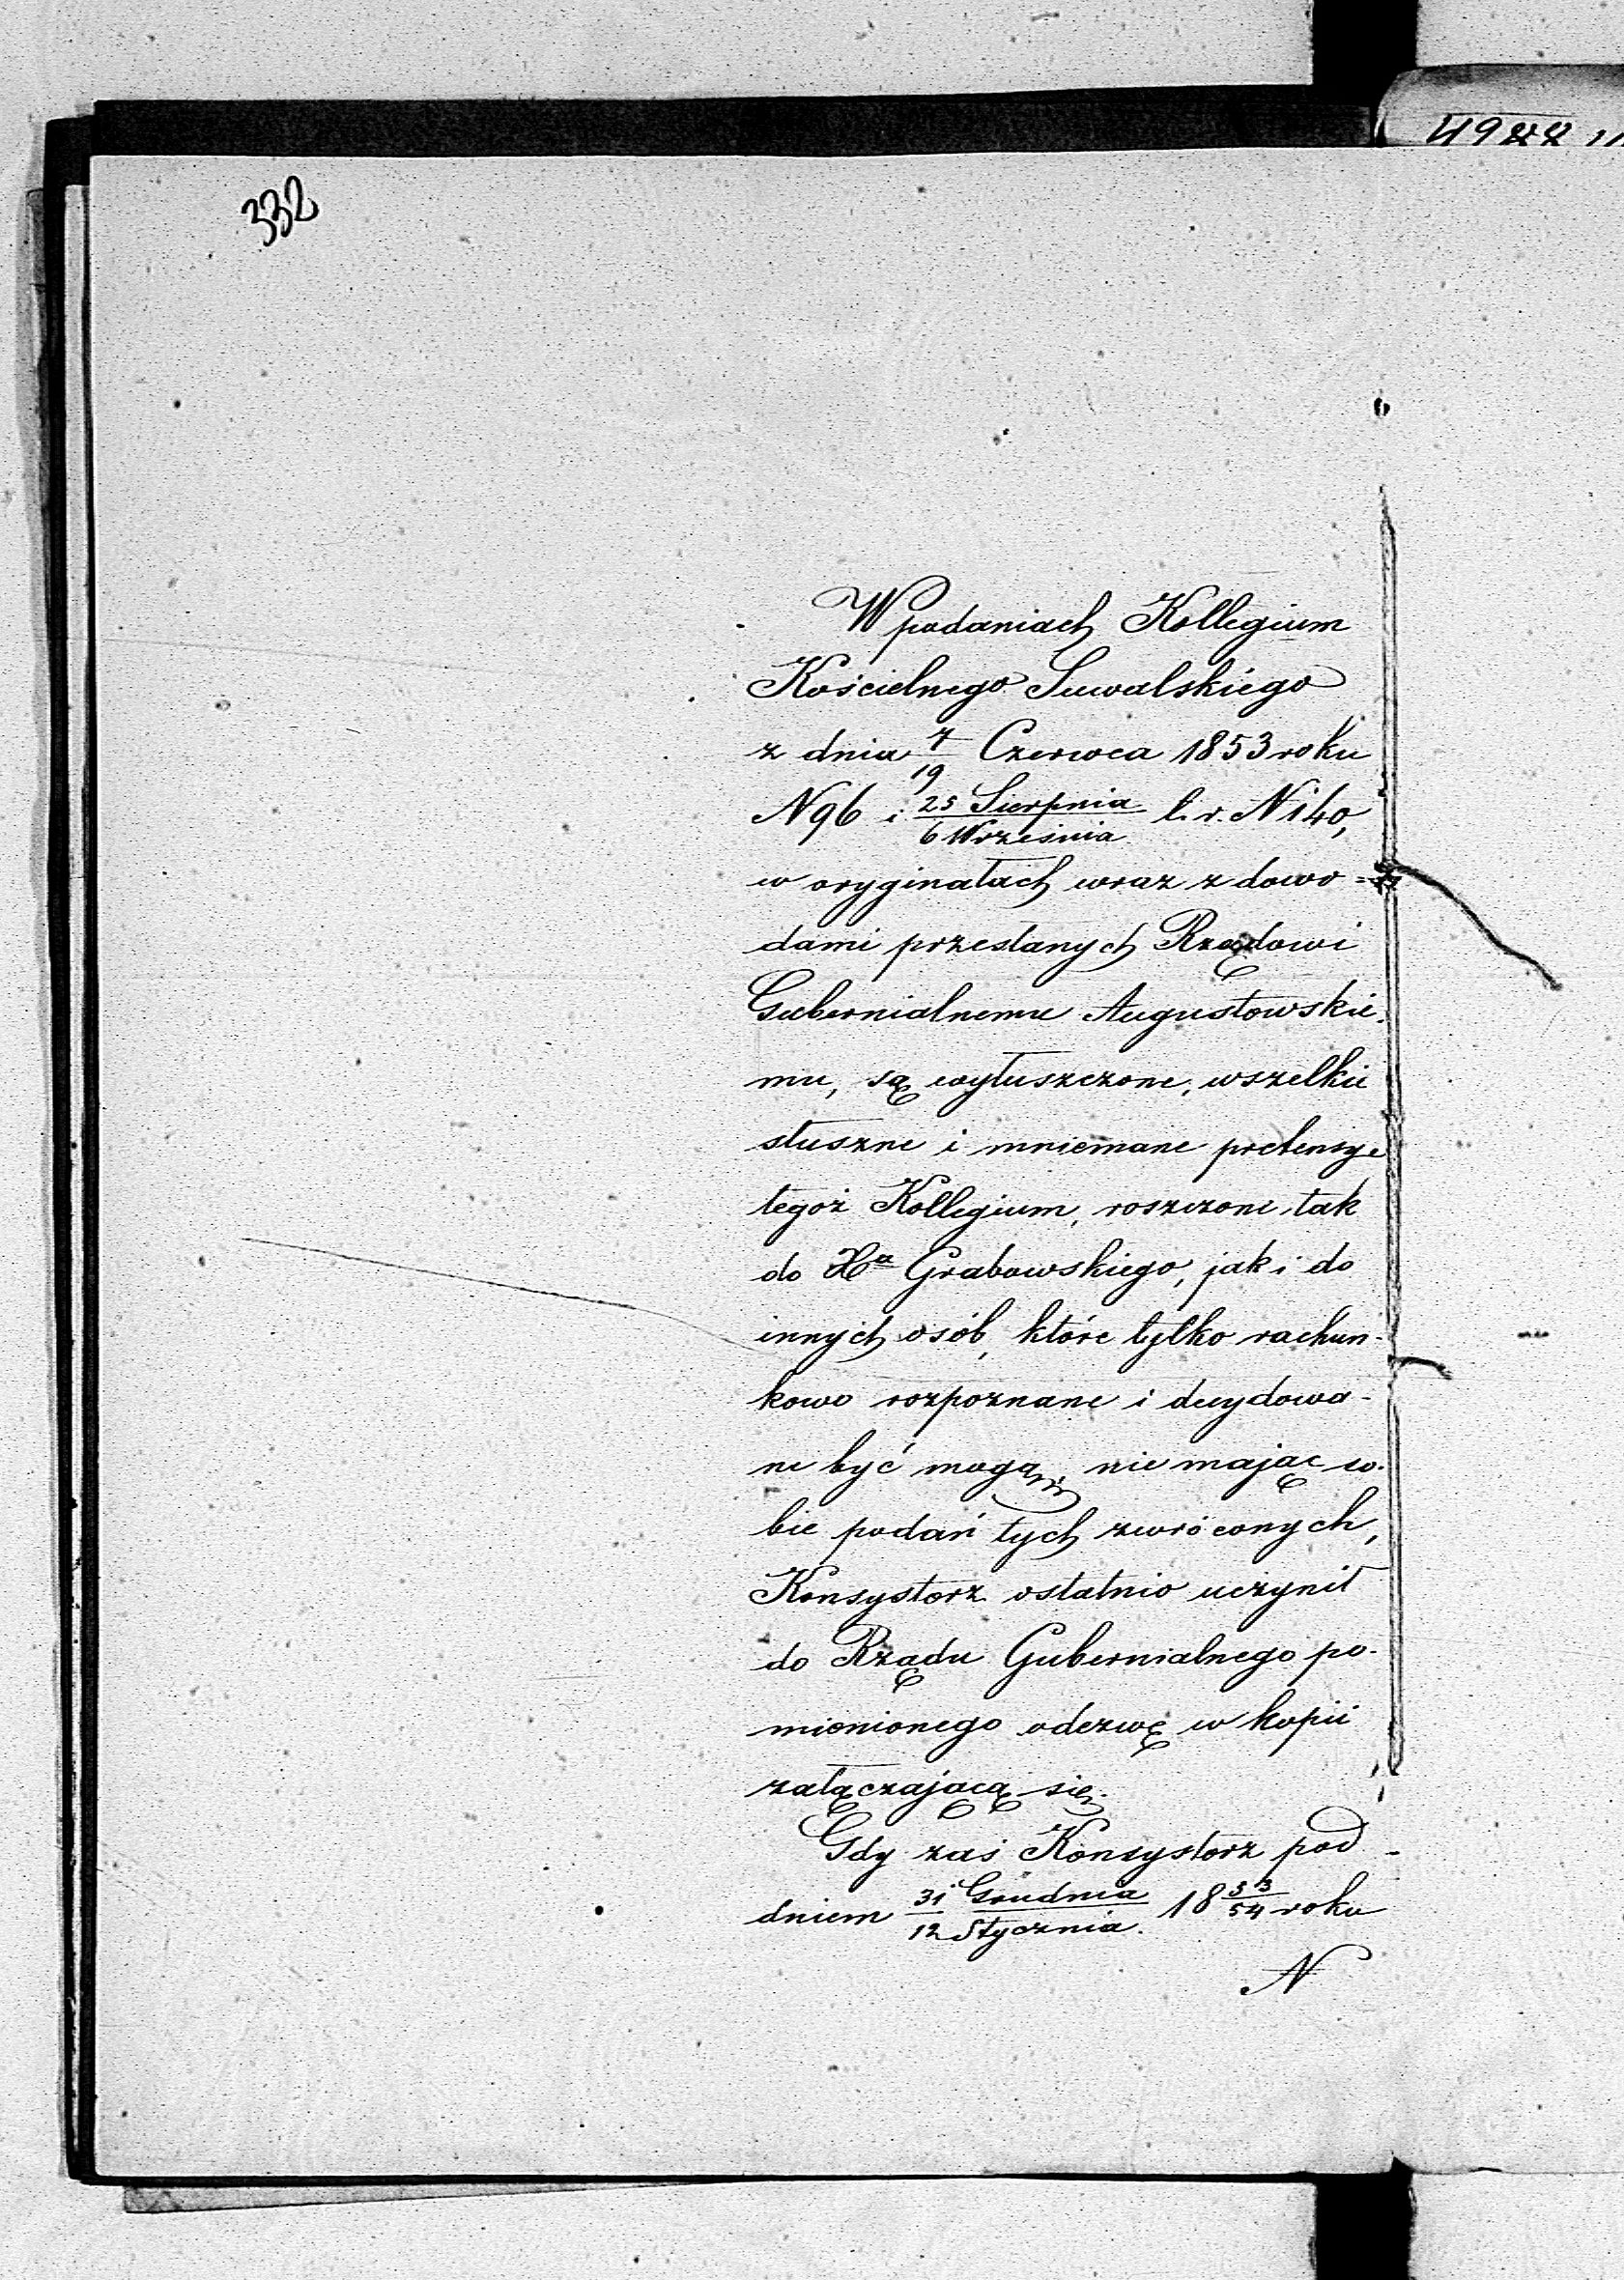 332
W podaniach Kollegium
Kościelnego Suwalskiego
z dnia 7/19 Czerwca 1853 roku
N 96 i 25 Sierpnia/6 Września b. r. N 140,
w oryginałach wraz z dowo=
dami przesłanych Rządowi
Gubernialnemu Augustowskie-
mu, są wyłuszczone, wszelkie
słuszne i mniemane pretensye
tegoż Kollegium, roszczone tak
do Xa Grabowskiego, jak i do
innych osób, które tylko rachun-
kowo rozpoznane i decydowa-
ne być mogą, nie mając so-
bie podań tych zwróconych,
Konsystorz ostatnio uczynił
do Rządu Gubernialnego po-
mienionego odezwę w kopii
załączającą się.
Gdy zaś Konsystorz pod
dniem 31 Grudnia/12 Stycznia 18 53/54 roku
N